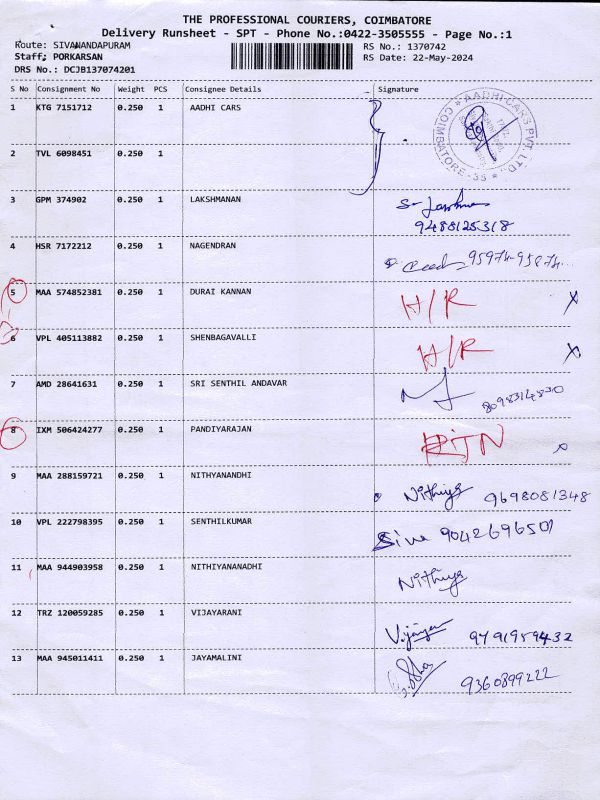 THE PROFESSIONAL COURIERS, COIMBATORE
Delivery Runsheet - SPT - Phone No.:0422-3505555 - Page No.:1
Route: SIVANANDAPURAM RS No.: 1370742
Staff: PORKARSAN RS Date: 22-May-2024
DRS No.: DCJB137074201
S No Consignment No Weight PCS Consignee Details Signature
1 KTG 7151712 0.250 1 AADHI CARS
AADHI CARS PVT. LTD. COIMBATORE-35
2 TVL 6098451 0.250 1
3 GPM 374902 0.250 1 LAKSHMANAN
9488125318
4 HSR 7172212 0.250 1 NAGENDRAN
5 MAA 574852381 0.250 1 DURAI KANNAN H/R X
6 VPL 405113882 0.250 1 SHENBAGAVALLI H/R X
7 AMD 28641631 0.250 1 SRI SENTHIL ANDAVAR
8098314830
8 IXM 506424277 0.250 1 PANDIYARAJAN RTN x
9 MAA 288159721 0.250 1 NITHYANANDHI
Nithiya 9698081348
10 VPL 222798395 0.250 1 SENTHILKUMAR
Siva 9042696501
11 MAA 944903958 0.250 1 NITHIYANANADHI
Nithiya
12 TRZ 120059285 0.250 1 VIJAYARANI
9791959432
13 MAA 945011411 0.250 1 JAYAMALINI
9360899222